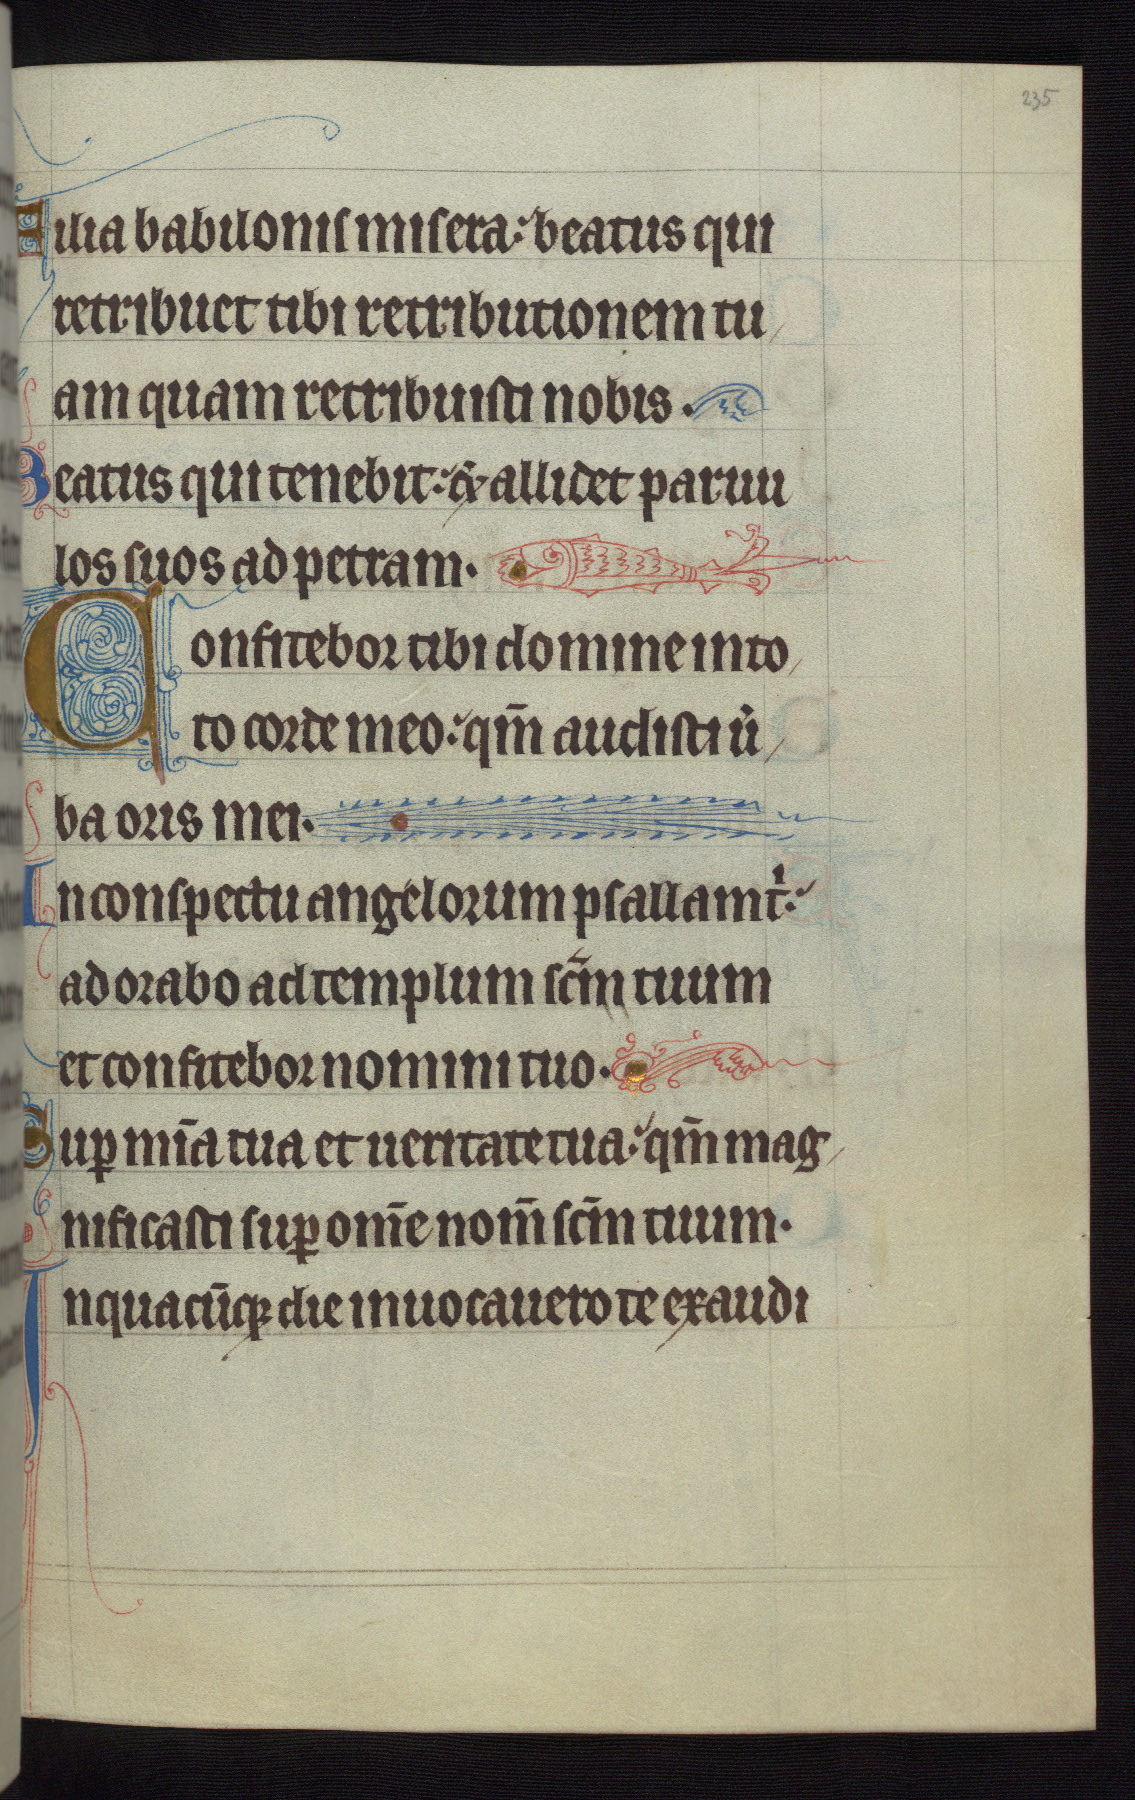 235
Filia babilonis misera: beatus qui
retribuet tibi retributionem tu
am quam retribuisti nobis.
Beatus qui tenebit: & allidet paruu
los suos ad petram.
Confitebor tibi domine in to
to corde meo: qm̄ audisti ůͥ
ba oris mei.
In conspectu angelorum psallam tͥ:
adorabo ad templum scm̄ tuum
et confitebor nomini tuo.
Suꝑ mīa tua et ueritate tua: qm̄ mag
nificasti suꝑ om̄e nom̄ scm̄ tuum.
In quacūqꝫ die inuocauero te exaudi